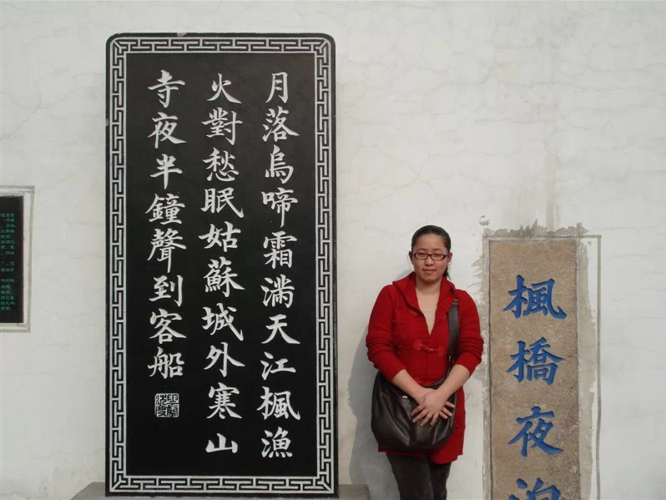 月落烏啼霜满天江楓漁
火對愁眠姑蘇城外寒山
寺夜半鐘聲到客船
楓橋夜泊